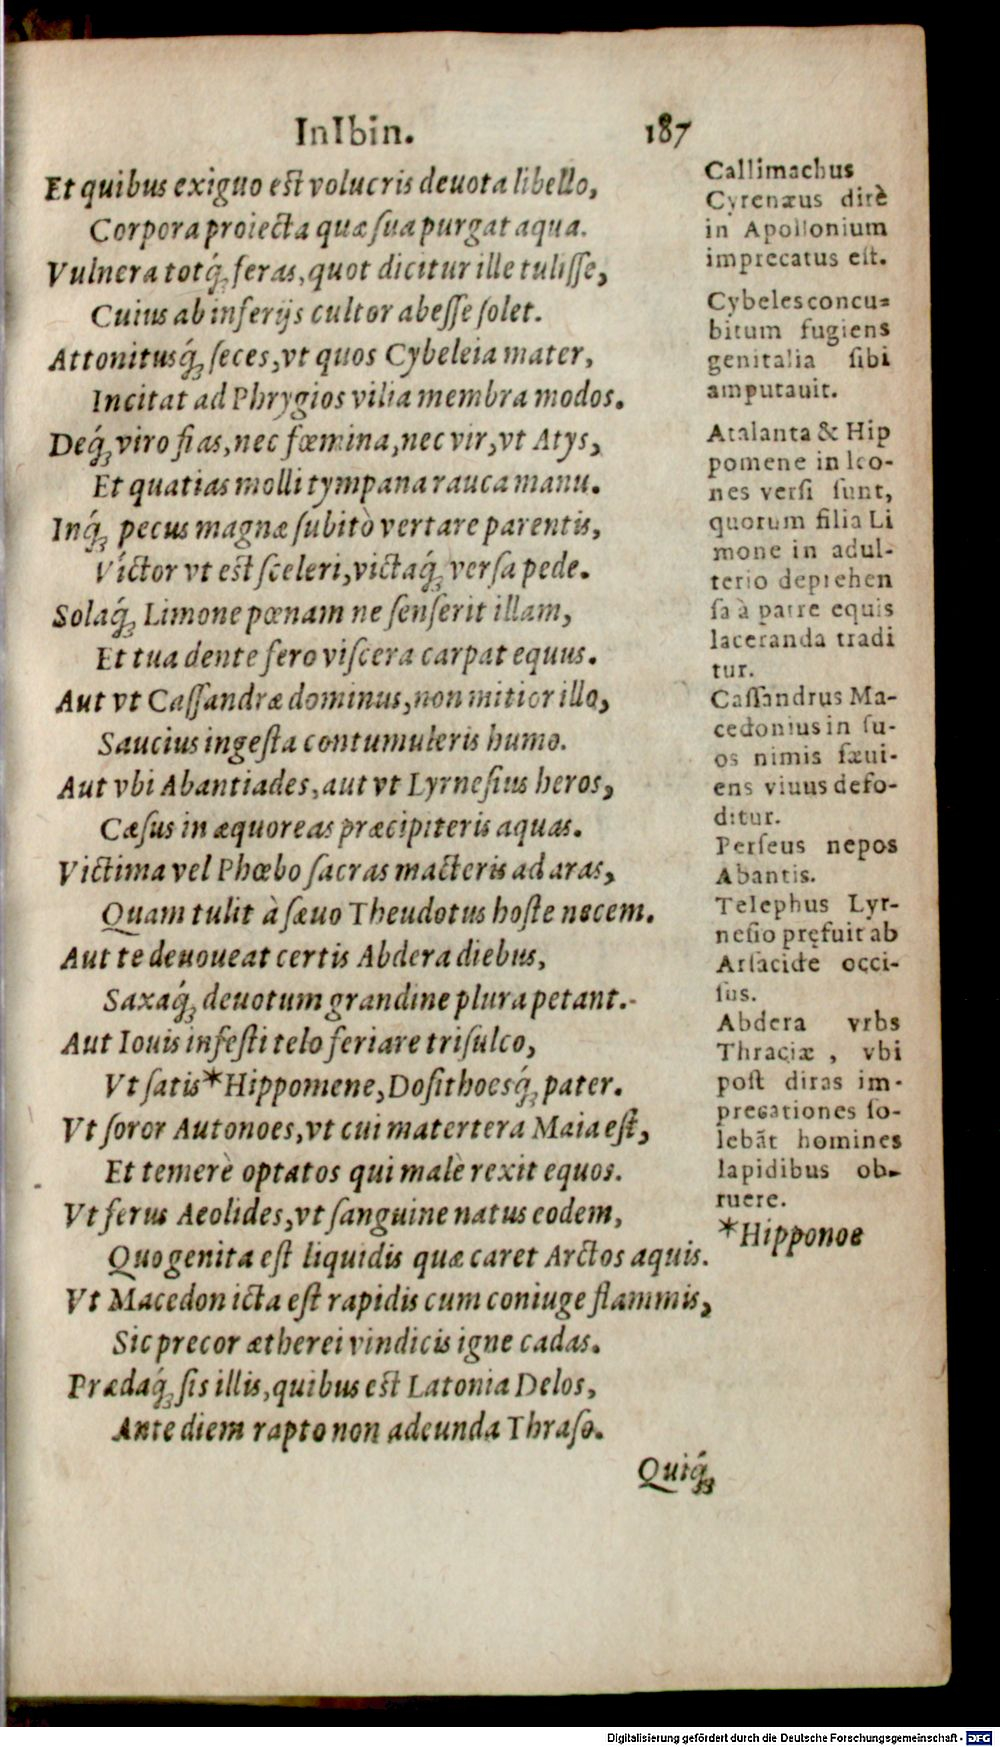 InIbin. 187
Et quibus exiguo est volucris deuota libello,
Corpora proiecta quæ ſua purgat aqua.
Vulnera totq́; feras, quot dicitur ille tuliſſe,
Cuius ab inferijs cultor abeſſe ſolet.
Attonitusq́; ſeces, vt quos Cybeleia mater,
Incitat ad Phrygios vilia membra modos.
Deq́; viro fias, nec fœmina, nec vir, vt Atys,
Et quatias molli tympana rauca manu.
Inq́; pecus magnæ ſubitò vertare parentis,
Victor vt est ſceleri, victaq́; verſa pede.
Solaq́; Limone pœnam ne ſenſerit illam,
Et tua dente fero viſcera carpat equus.
Aut vt Caſſandræ dominus, non mitior illo,
Saucius ingeſta contumuleris humo.
Aut vbi Abantiades, aut vt Lyrneſius heros,
Cæſus in æquoreas præcipiteris aquas.
Victima vel Phœbo ſacras macteris ad aras,
Quam tulit à ſæuo Theudotus hoſte necem.
Aut te deuoueat certis Abdera diebus,
Saxaq́; deuotum grandine plura petant.
Aut Iouis infeſti telo feriare triſulco,
Vt ſatis *Hippomene, Doſithoesq́; pater.
Vt ſoror Autonoes, vt cui matertera Maia eſt,
Et temerè optatos qui malè rexit equos.
Vt ferus Aeolides, vt ſanguine natus eodem,
Quo genita eſt liquidis quæ caret Arctos aquis.
Vt Macedon icta eſt rapidis cum coniuge flammis,
Sic precor ætherei vindicis igne cadas.
Prædaq́; ſis illis, quibus est Latonia Delos,
Ante diem rapto non adeunda Thraſo.
Quiq́;
Callimachus
Cyrenæus dirè
in Apollonium
imprecatus eſt.
Cybeles concu=
bitum fugiens
genitalia ſibi
amputauit.
Atalanta & Hip
pomene in leo-
nes verſi ſunt,
quorum filia Li
mone in adul-
terio deprehen
ſa à patre equis
laceranda tradi
tur.
Caſſandrus Ma-
cedonius in ſu-
os nimis ſæui-
ens viuus defo-
ditur.
Perſeus nepos
Abantis.
Telephus Lyr-
neſio pręfuit ab
Arſacide occi-
ſus.
Abdera vrbs
Thraciæ, vbi
poſt diras im-
precationes ſo-
lebãt homines
lapidibus ob-
ruere.
*Hipponoe
Digitalisierung gefördert durch die Deutsche Forschungsgemeinschaft - DFG